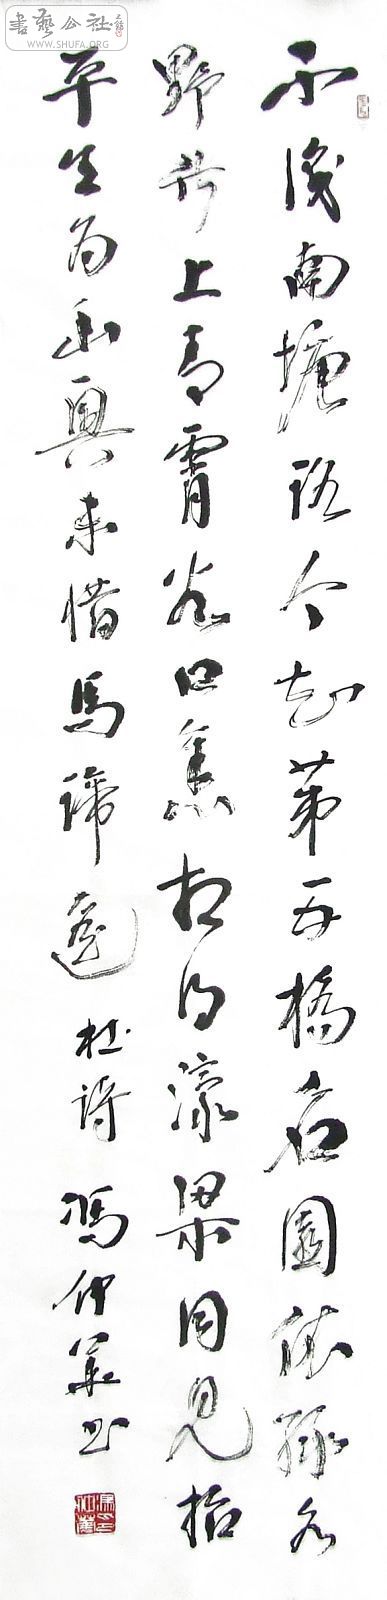 書藝公社
WWW.SHUFA.ORG
不識南塘路今知第五橋名園依綠水
野竹上青霄谷口舊相得濠梁同見招
平生為幽興未惜馬蹄遙 杜詩 馮仲華書